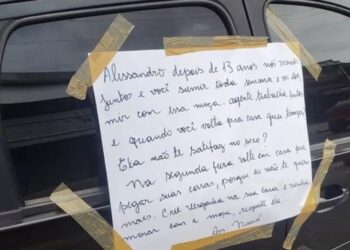 Alessandro depois de 13 anos nós morando
juntos e você sumir toda semana e ir dor
mir com essa moça. agente trabalha juntos
e quando você volta pra casa quer brigar,
Ela não te satisfaz no sexo?
Na segunda feira volte em casa pra
pegar suas coisas, porque eu não te quero
mais. Crie vergonha na sua cara e venha
morar com a moça, respeite
Ass: Naná